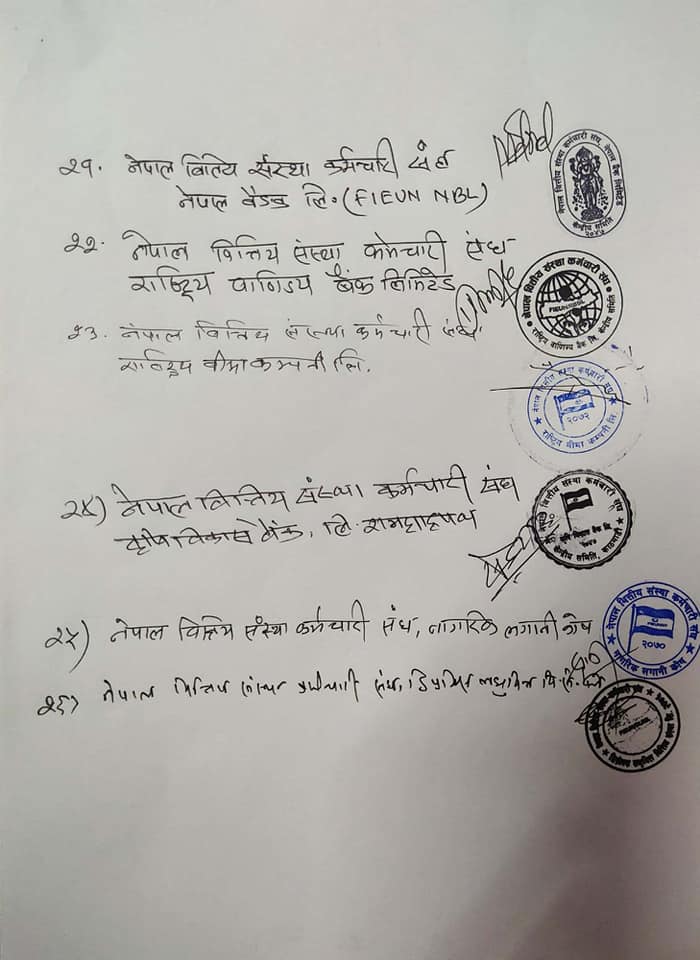 २१. नेपाल वित्तिय संस्था कर्मचारी संघ
नेपाल बैङ्क लि. (FIEUN NBL)
नेपाल वित्तीय संस्था कर्मचारी संघ, नेपाल बैंक लिमिटेड
केन्द्रीय समिति
२२. नेपाल वित्तिय संस्था कर्मचारी संघ
राष्ट्रिय वाणिज्य बैंक लिमिटेड
नेपाल वित्तीय संस्था कर्मचारी संघ
राष्ट्रिय वाणिज्य बैंक लि. केन्द्रीय समिति
२३. नेपाल वित्तिय संस्था कर्मचारी संघ
राष्ट्रिय बीमा कम्पनी लि.
नेपाल वित्तीय संस्था कर्मचारी संघ
२०७२
राष्ट्रिय बीमा कम्पनी लि.
२४) नेपाल वित्तिय संस्था कर्मचारी संघ
कृषि विकास बैंक, लि रामशाहपथ
नेपाल वित्तीय संस्था कर्मचारी संघ
कृषि विकास बैंक लि.
केन्द्रीय समिति, काठमाडौं
२५) नेपाल वित्तिय संस्था कर्मचारी संघ, नागरिक लगानी कोष
नेपाल वित्तीय संस्था कर्मचारी संघ
२०७०
नागरिक लगानी कोष
२६) नेपाल वित्तिय संस्था कर्मचारी संघ,